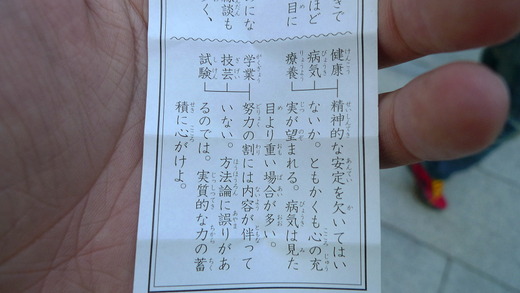 きで
ほど
目に
にな
談も
く、
健康
病気
療養
精神的な安定を欠いてはい
ないか。ともかくも心の充
実が望まれる。病気は見た
目より重い場合が多い。
学業
技芸
試験
努力の割には内容が伴って
いない。方法論に誤りがあ
るのでは。実質的な力の蓄
積に心がけよ。